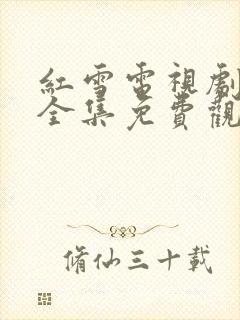 紅雪電視劇
全集免費觀
脩仙三十載